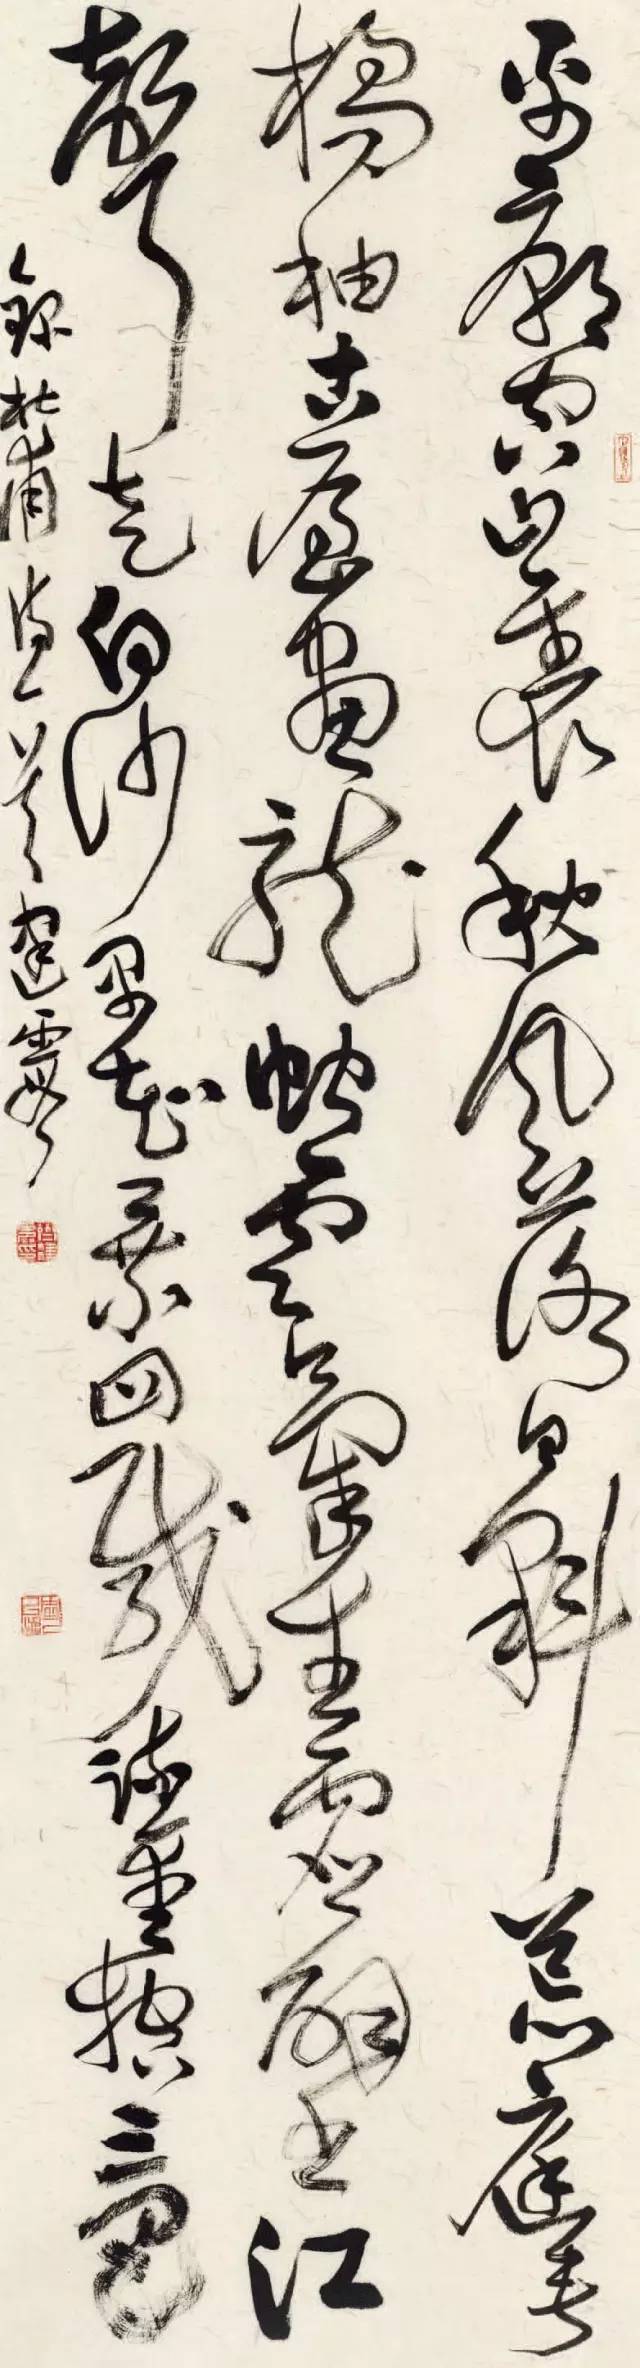 禹廟空山裏秋風落日斜荒庭垂
橘柚古屋畫龍蛇雲氣生虛壁江
聲走白沙早知乘四載疏鑿控三巴
錄杜甫詩